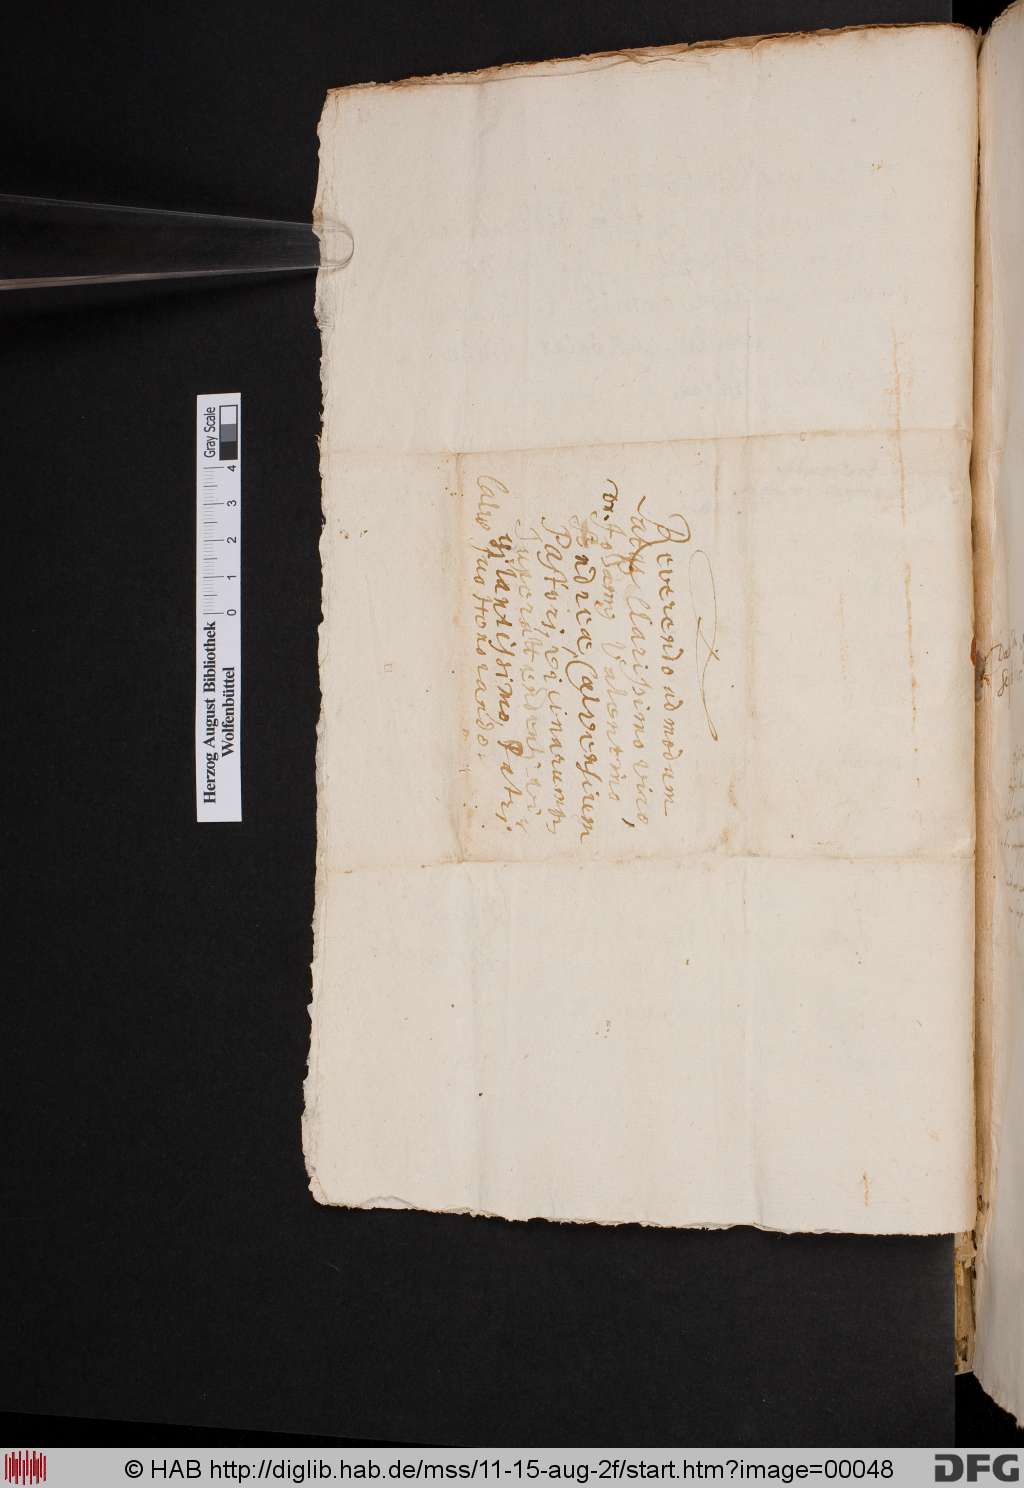 Reverendo admodum
Clarissimo viro,
Dr. Johanni Valentino
Andreæ, Calvensium
Pastori, vicinarumq
Superattendenti vi-
gilantissimo, Patri
suo Honorando.
Calw
Herzog August Bibliothek
Wolfenbüttel
0 1 2 3 4
Gray Scale
© HAB http://diglib.hab.de/mss/11-15-aug-2f/start.htm?image=00048
DFG